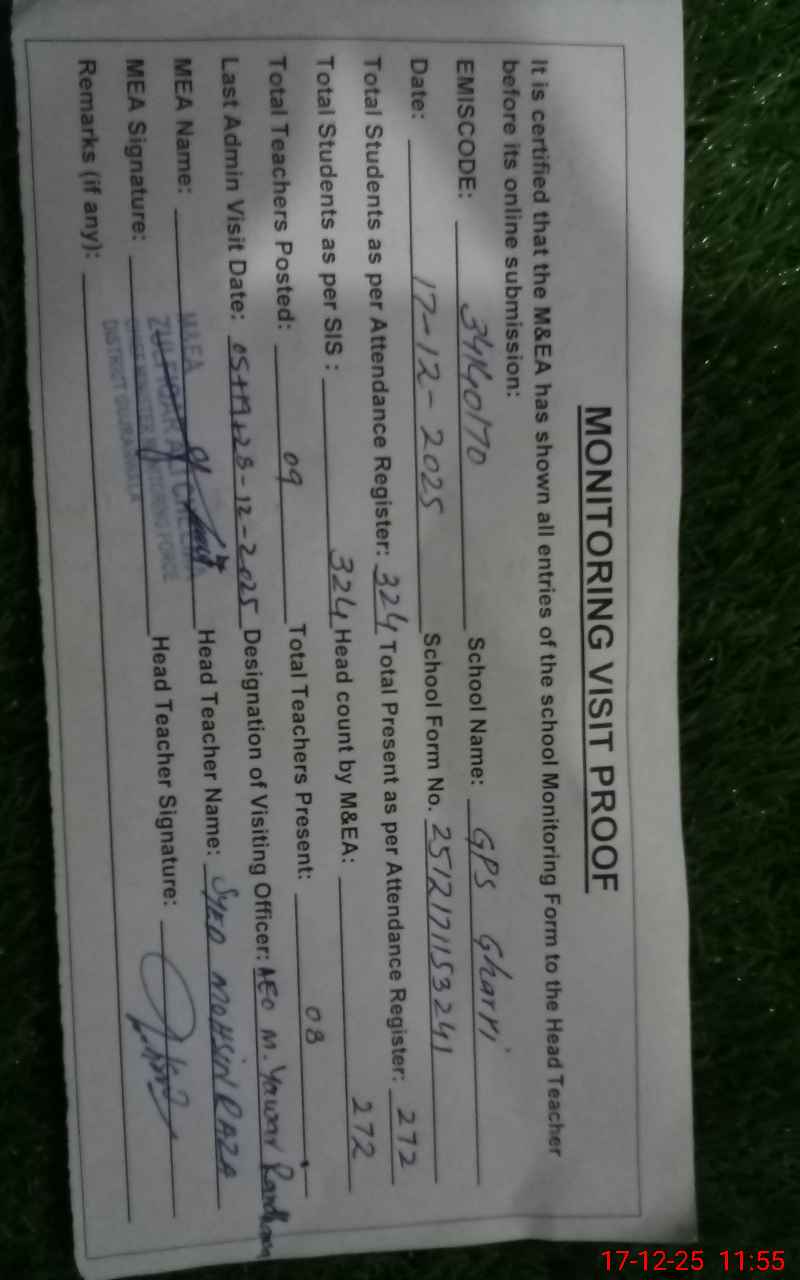 MONITORING VISIT PROOF
It is certified that the M&EA has shown all entries of the school Monitoring Form to the Head Teacher
before its online submission:
EMISCODE: 34140170 School Name: GPS Gharri
Date: 17-12-2025 School Form No. 2512171153241
Total Students as per Attendance Register: 324 Total Present as per Attendance Register: 272
Total Students as per SIS : 324 Head count by M&EA: 272
Total Teachers Posted: 09 Total Teachers Present: 08
Last Admin Visit Date: 05+19+28-12-2025 Designation of Visiting Officer: AEO M. Yawar
MEA Name: M&EA Head Teacher Name: SYED MOHSIN RAZA
MEA Signature: Head Teacher Signature:
ZULFIQAR ALI CHEEMA
CHIEF MINISTER MONITORING FORCE
DISTRICT GUJRANWALA
Remarks (if any):
17-12-25 11:55